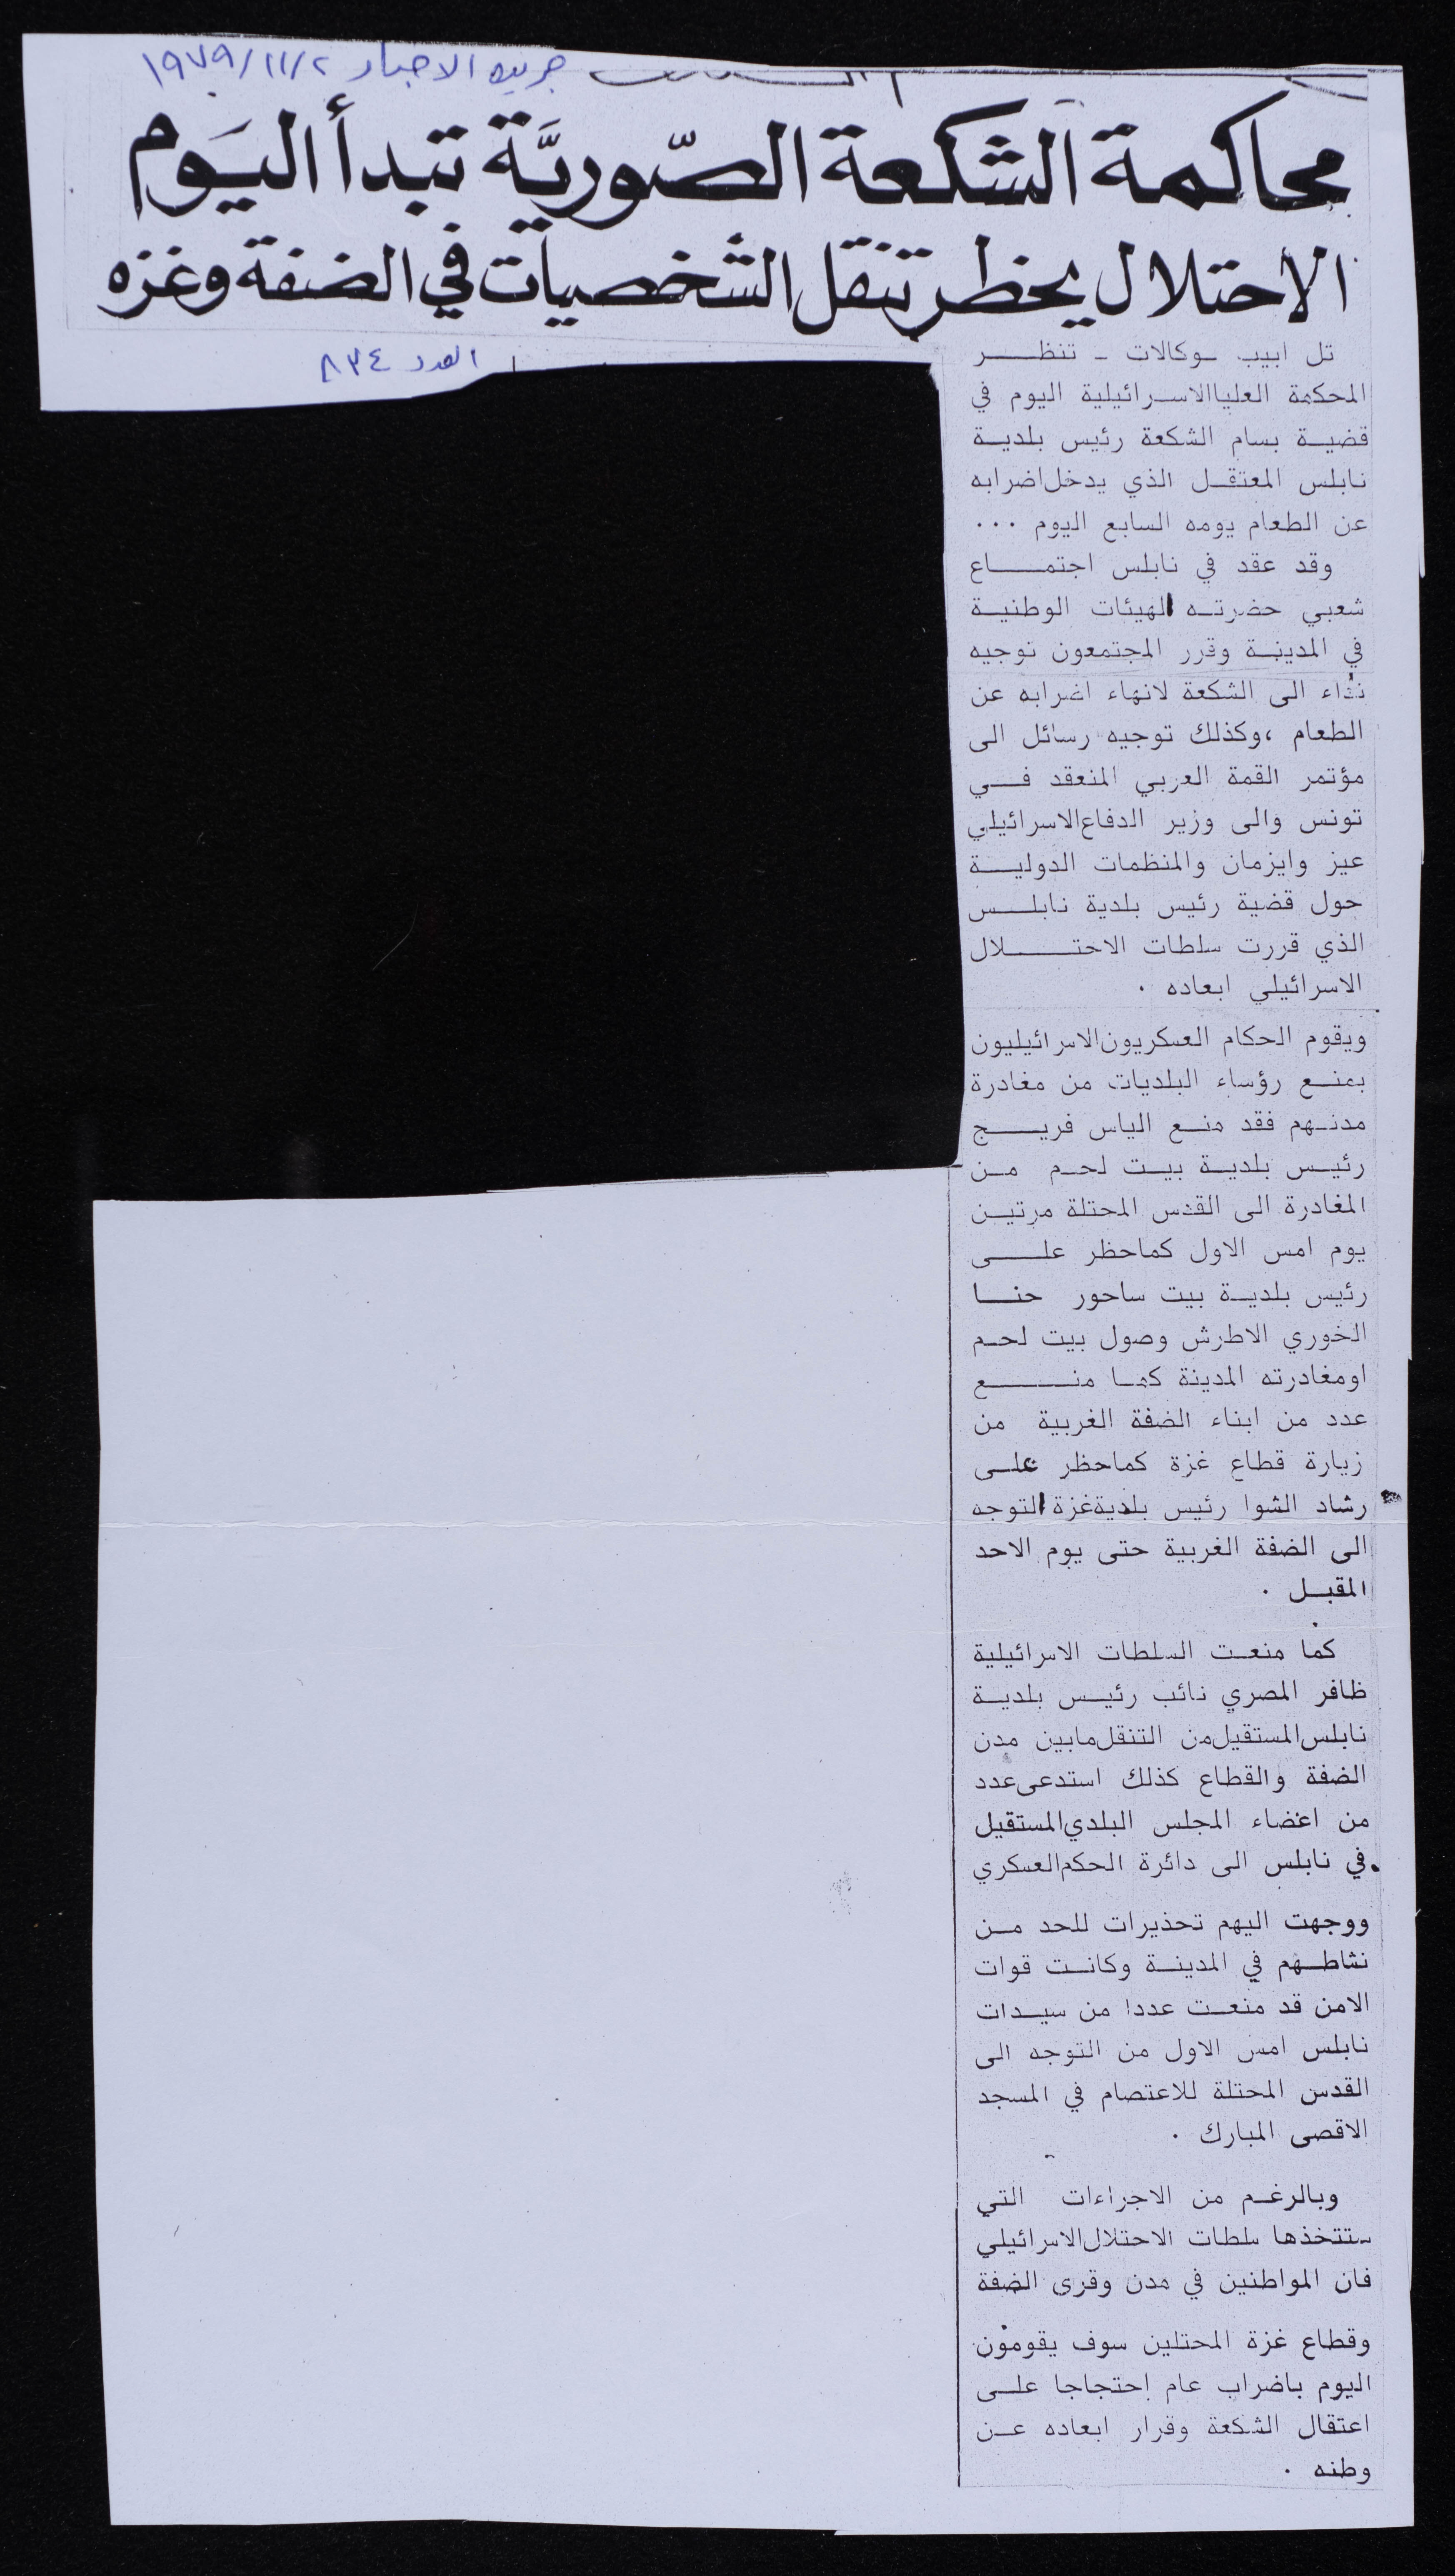 جريدة الاخبار ١٩٧٩/١١/٢
محاكمة الشكعة الصّوريَّة تبدأ اليَوم
الاحتلال يحظر تنقل الشخصيات في الضفة وغزه
العدد ٨٣٤
تل ابيب ـ وكالات ـ تنظر
المحكمة العليا الاسرائيلية اليوم في
قضية بسام الشكعة رئيس بلدية
نابلس المعتقل الذي يدخل اضرابه
عن الطعام يومه السابع اليوم ...
وقد عقد في نابلس اجتماع
شعبي حضرته الهيئات الوطنية
في المدينة وقرر المجتمعون توجيه
نداء الى الشكعة لانهاء اضرابه عن
الطعام ، وكذلك توجيه رسائل الى
مؤتمر القمة العربي المنعقد في
تونس والى وزير الدفاع الاسرائيلي
عيز وايزمان والمنظمات الدولية
حول قضية رئيس بلدية نابلس
الذي قررت سلطات الاحتلال
الاسرائيلي ابعاده .
ويقوم الحكام العسكريون الاسرائيليون
بمنع رؤساء البلديات من مغادرة
مدنهم فقد منع الياس فريج
رئيس بلدية بيت لحم من
المغادرة الى القدس المحتلة مرتين
يوم امس الاول كما حظر على
رئيس بلدية بيت ساحور حنا
الخوري الاطرش وصول بيت لحم
او مغادرته المدينة كما منع
عدد من ابناء الضفة الغربية من
زيارة قطاع غزة كما حظر على
رشاد الشوا رئيس بلدية غزة التوجه
الى الضفة الغربية حتى يوم الاحد
المقبل .
كما منعت السلطات الاسرائيلية
ظافر المصري نائب رئيس بلدية
نابلس المستقيل من التنقل مابين مدن
الضفة والقطاع كذلك استدعى عدد
من اعضاء المجلس البلدي المستقيل
في نابلس الى دائرة الحكم العسكري
ووجهت اليهم تحذيرات للحد من
نشاطهم في المدينة وكانت قوات
الامن قد منعت عددا من سيدات
نابلس امس الاول من التوجه الى
القدس المحتلة للاعتصام في المسجد
الاقصى المبارك .
وبالرغم من الاجراءات التي
ستتخذها سلطات الاحتلال الاسرائيلي
فان المواطنين في مدن وقرى الضفة
وقطاع غزة المحتلين سوف يقومون
اليوم باضراب عام إحتجاجا على
اعتقال الشكعة وقرار ابعاده عن
وطنه .